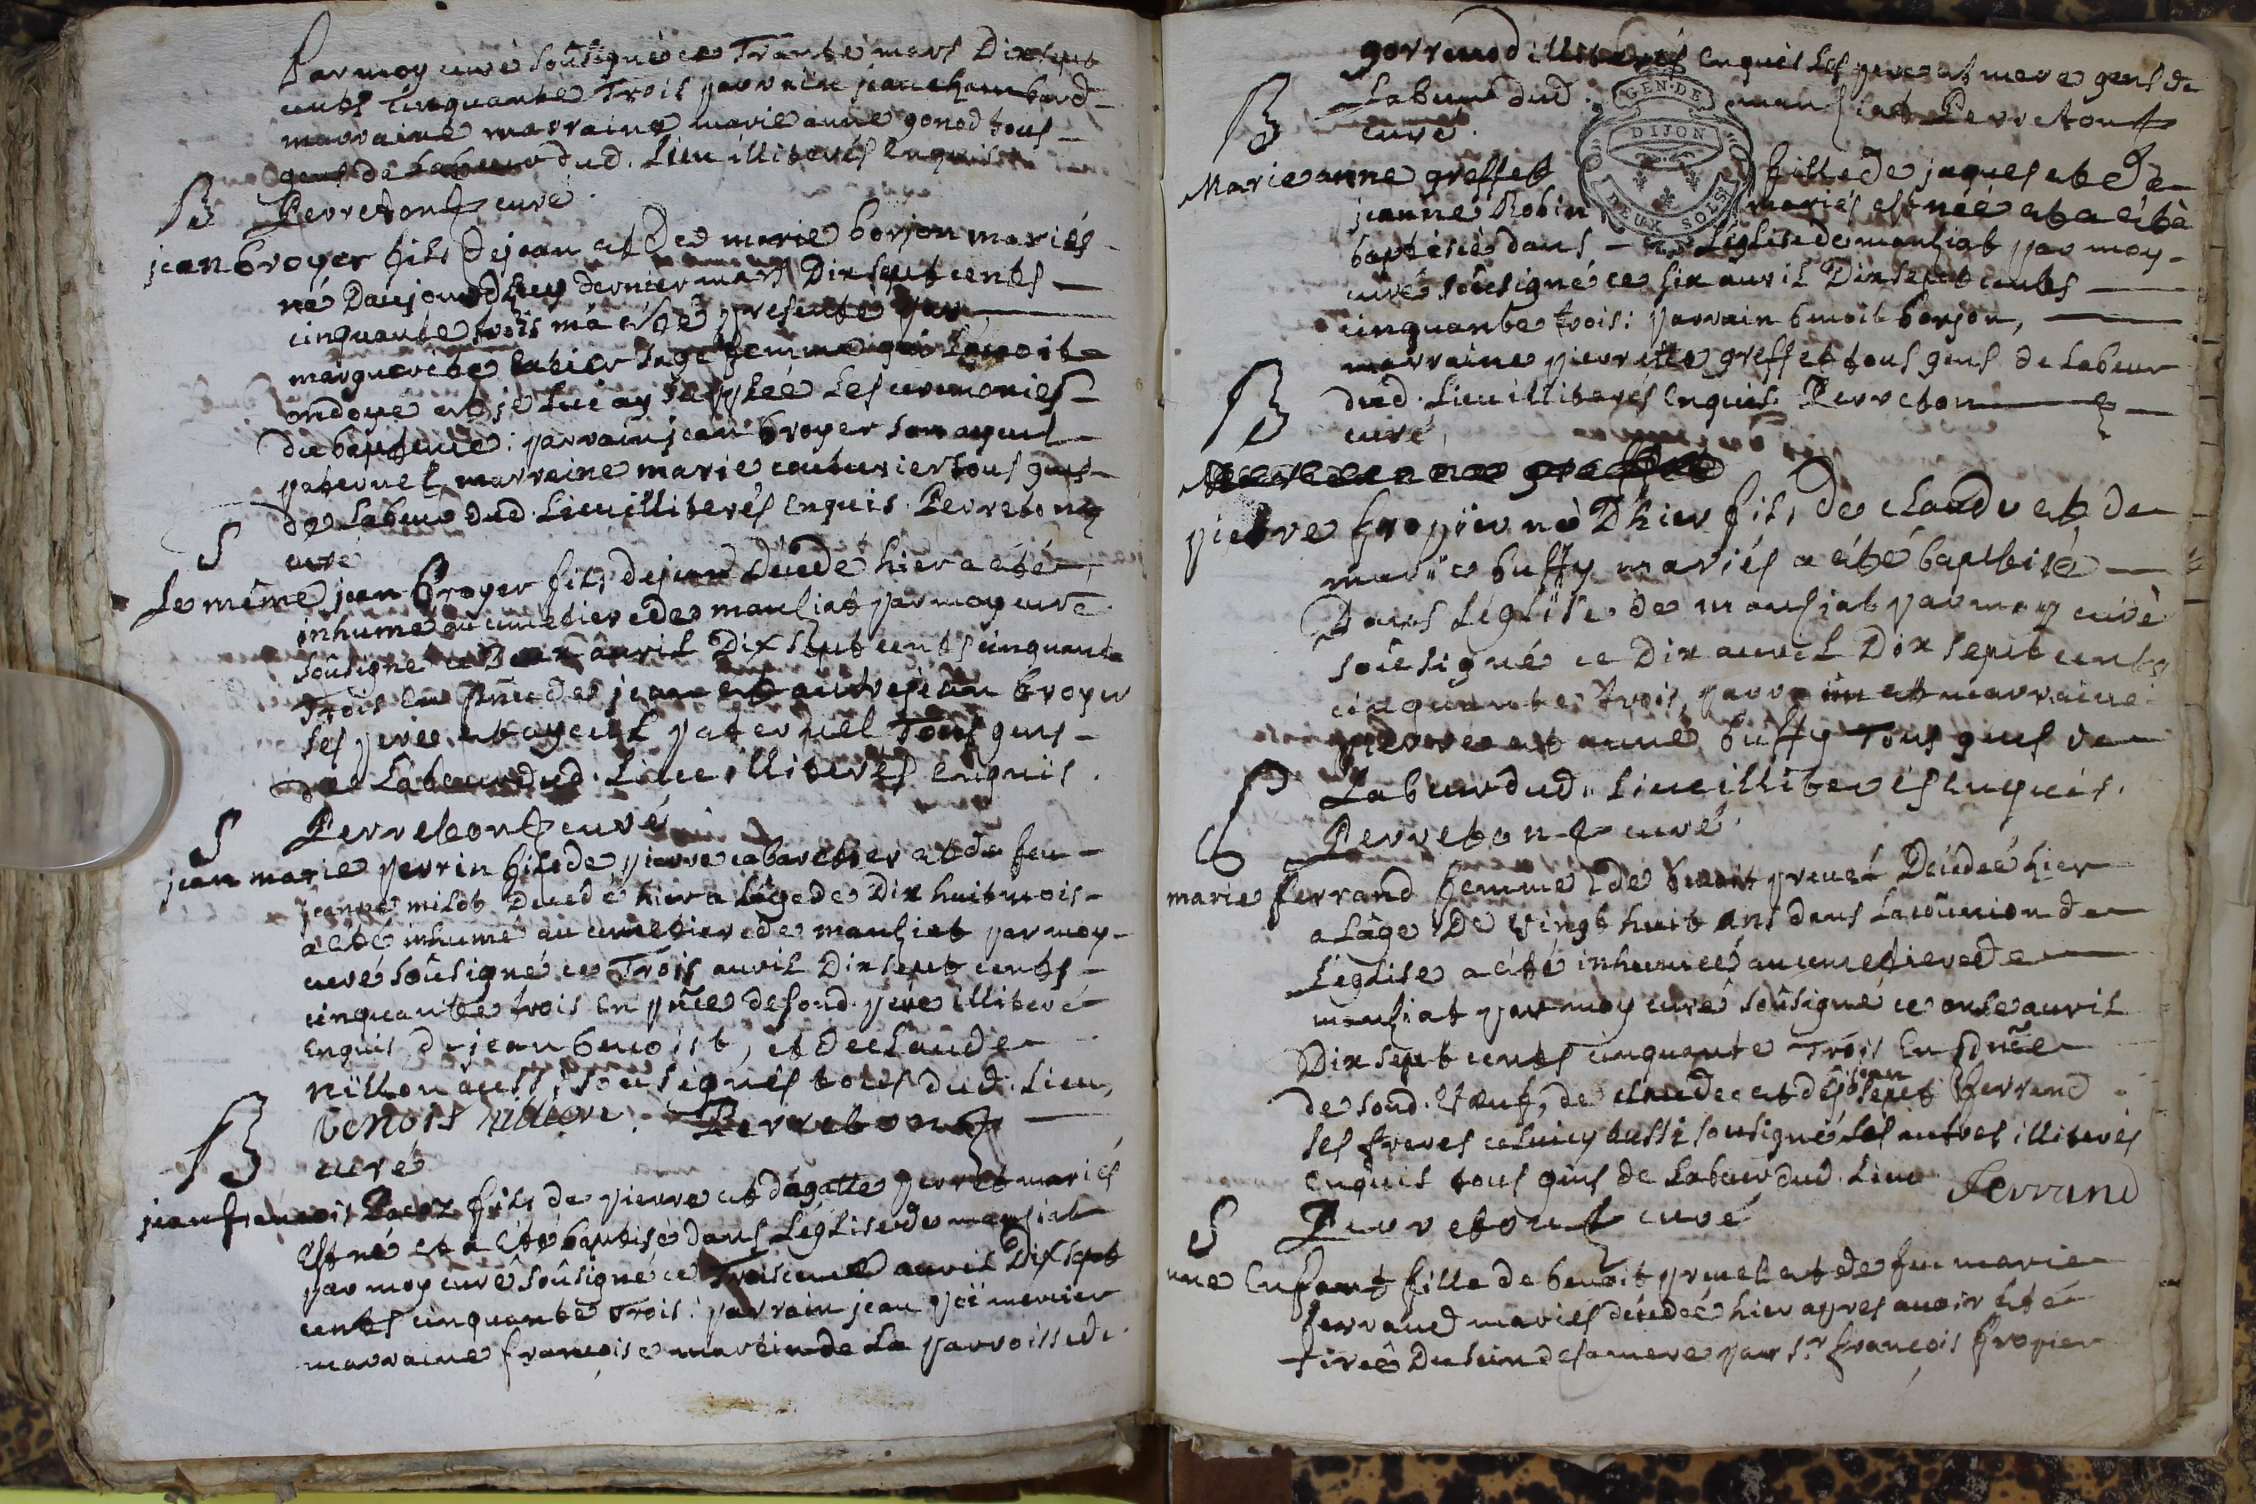 Par moy curé soûsigné ce Trante mars Dixsept
cents cinquante Trois parrain jean chambard
marraine marraine marie anne gonod tous
gens de Labeur dud. Lieu illiterés Enquis
B Perreton curé
jean broyer fils de jean et De marie borjon mariés
né Daujourdhuy dernier mars Dixsept cents
cinquante trois m'a esté presenté par
marguerite sage femme qui Lavoit
ondoyé et je Lui ay suppleé Les ceremonies
du baptême: parrain jean broyer son ayeul
paternel marraine marie couturier tous gens
de Labeur dud. Lieu illiterés Enquis. Perreton
S curé
Le même jean broyer fils de jean décédé hier a eté
inhumé au cimetiere de manziat par moy curé
soûsigné ce Deux avril Dix sept cents cinquante
Trois En pnce de jean et autre jean broyer
ses pere et ayeul paternel Tous gens
de Labeur dud. Lieu illiterés Enquis.
S Perreton curé
jean marie perrin fils de pierre cabaretier et de feu
jeanne milot Decedé hier a Lâge de Dix huit mois
a eté inhumé au cimetiere de manziat par moy
curé soûsigné ce Trois avril Dixsept cents
cinquante trois En pnce de sond. pere illiteré
Enquis, de jean benoist, et de Claude
nillon aussi sousignés tous dud. Lieu,
benois nillion. Perreton
B curé
jean francois fils de pierre et d'agatte perret mariés
Est né et a Eté baptisé dans L'église de manziat
par moy curé soûsigné ce Troisieme avril Dixsept
cents cinquante trois: parrain jean mercier
marraine francoise martin de La parroisse de
gorrevod illiterés Enquis Les pere et mere gens de
B Labeur dud. manziat Perreton
curé.
GEN. DE
DIJON
DEUX SOLS
Marie anne greffet fille de jaques et De
jeanne Robin mariés est née et a eté
baptisée dans L'église de manziat par moy
curé soûsigné ce six avril Dixsept cents
cinquante trois: parrain benoit borjon,
marraine pierrette greffet tous gens de Labeur
B dud. Lieu illiterés Enquis. Perreton
curé,
pierre fropier né D'hier fils de claude et de
marie buffy mariés a été baptisé
Dans L'église de manziat par moy curé
soûsigné ce Dix avril Dix sept cents
cinquante trois, parrain et marraine
pierre et anne buffy Tous gens de
Labeur dud. Lieu illiterés Enquis.
S Perreton curé.
marie ferrand femme de benoit pruel Décédée hier
a Lâge De vingt huit ans dans La coûnion de
L'église a été inhumée au cimetiere de
manziat par moy curé soûsigné ce onse avril
Dix sept cents cinquante Trois En pnce
de sond. veuf, de claude et de joseph jean ferrand
ses freres celuicy aussi soûsigné Les autres illiterés
Enquis tous gens de Labeur dud. Lieu Ferrand
S Perreton curé
une Enfant fille de benoit pruel et de feu marie
ferrand mariés décédée hier apres avoir été
tirée Du sein de sa mere par sr françois fropier